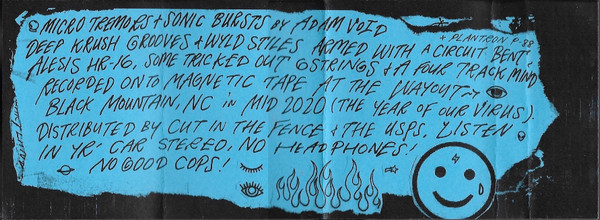 MICRO TREMORS + SONIC BURSTS BY ADAM VOID
+ PLANTRON P-88
DEEP KRUSH GROOVES + WYLD STILES ARMED WITH A CIRCUIT BENT
ALESIS HR-16, SOME TRICKED OUT 6 STRINGS + A FOUR TRACK MIND
RECORDED ONTO MAGNETIC TAPE AT THE WAYOUT
BLACK MOUNTAIN, NC in MID 2020 (THE YEAR OF OUR VIRUS).
DISTRIBUTED BY CUT IN THE FENCE + THE USPS. LISTEN
IN YR' CAR STEREO, NO HEADPHONES!
NO GOOD COPS!